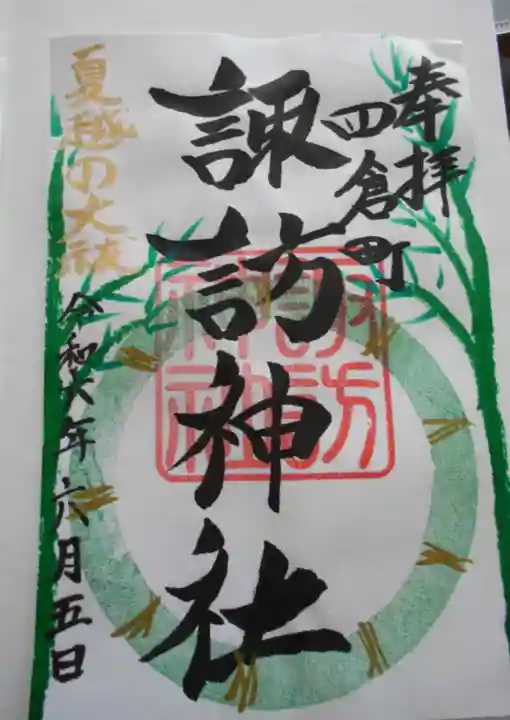 奉拝
四倉町
諏訪神社
諏訪
神社
夏越の大祓
令和六年六月五日